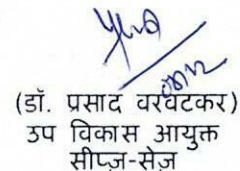 (डॉ. प्रसाद वरवटकर)
उप विकास आयुक्त
सीप्ज़-सेज़